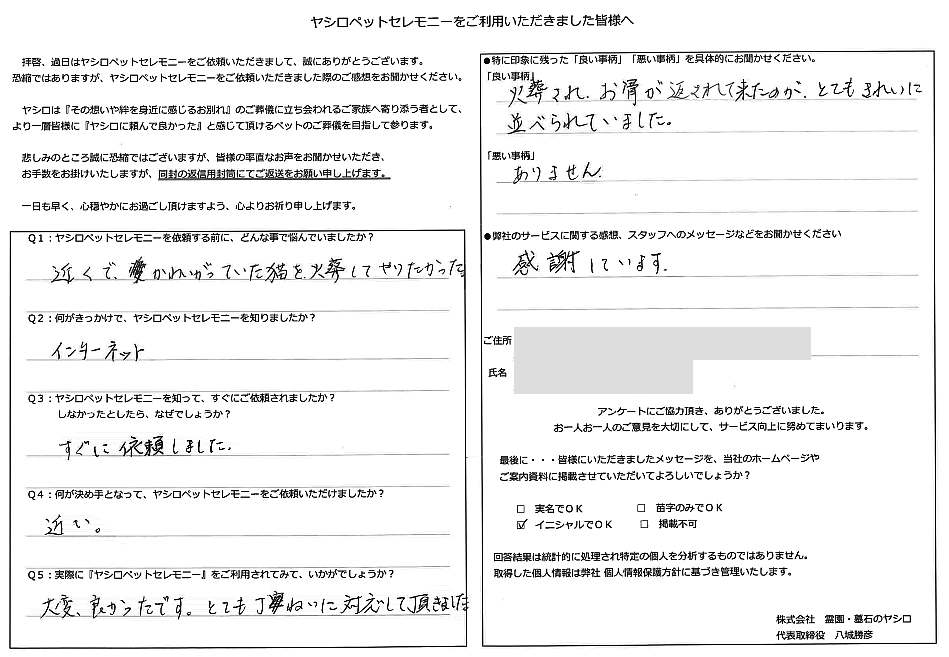 ヤシロペットセレモニーをご利用いただきました皆様へ
拝啓、過日はヤシロペットセレモニーをご依頼いただきまして、誠にありがとうございます。
恐縮ではありますが、ヤシロペットセレモニーをご依頼いただきました際のご感想をお聞かせください。
ヤシロは『その想いや絆を身近に感じるお別れ』のご葬儀に立ち会われるご家族へ寄り添う者として、
より一層皆様に『ヤシロに頼んで良かった』と感じて頂けるペットのご葬儀を目指して参ります。
悲しみのところ誠に恐縮ではございますが、皆様の率直なお声をお聞かせいただき、
お手数をお掛けいたしますが、同封の返信用封筒にてご返送をお願い申し上げます。
一日も早く、心穏やかにお過ごし頂けますよう、心よりお祈り申し上げます。
Q1：ヤシロペットセレモニーを依頼する前に、どんな事で悩んでいましたか？
近くで、愛かわいがっていた猫を火葬してやりたかった
Q2：何がきっかけで、ヤシロペットセレモニーを知りましたか？
インターネット
Q3：ヤシロペットセレモニーを知って、すぐにご依頼されましたか？
しなかったとしたら、なぜでしょうか？
すぐに依頼しました。
Q4：何が決め手となって、ヤシロペットセレモニーをご依頼いただけましたか？
近い。
Q5：実際に『ヤシロペットセレモニー』をご利用されてみて、いかがでしょうか？
大変、良かったです。とても丁寧ねいに対応して頂きました
●特に印象に残った「良い事柄」「悪い事柄」を具体的にお聞かせください。
「良い事柄」
火葬され、お骨が返されて来たのが、とてもきれいに
並べられていました。
「悪い事柄」
ありません。
●弊社のサービスに関する感想、スタッフへのメッセージなどをお聞かせください
感謝しています。
ご住所
氏名
アンケートにご協力頂き、ありがとうございました。
お一人お一人のご意見を大切にして、サービス向上に努めてまいります。
最後に・・・皆様にいただきましたメッセージを、当社のホームページや
ご案内資料に掲載させていただいてよろしいでしょうか？
□ 実名でOK □ 苗字のみでOK
☑ イニシャルでOK □ 掲載不可
回答結果は統計的に処理され特定の個人を分析するものではありません。
取得した個人情報は弊社 個人情報保護方針に基づき管理いたします。
株式会社 霊園・墓石のヤシロ
代表取締役 八城勝彦